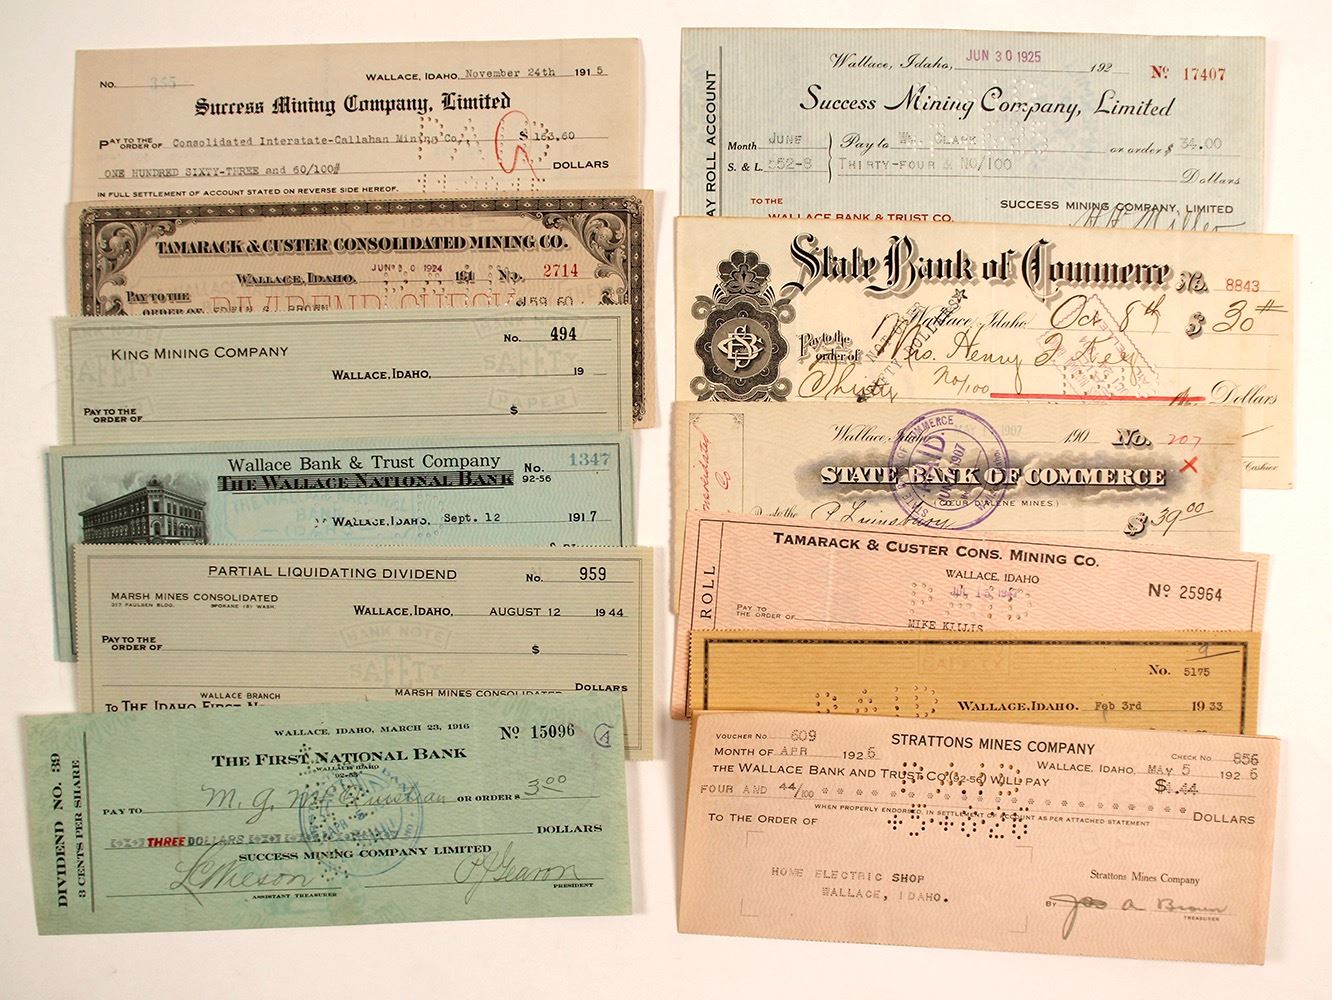 No. 355 WALLACE, IDAHO, November 24th 1915
Success Mining Company, Limited
PAY TO THE ORDER OF Consolidated Interstate-Callahan Mining Co., $ 163.60
ONE HUNDRED SIXTY-THREE and 60/100# DOLLARS
IN FULL SETTLEMENT OF ACCOUNT STATED ON REVERSE SIDE HEREOF.
TAMARACK & CUSTER CONSOLIDATED MINING CO.
WALLACE, IDAHO. JUN 30 1924 191 No. 2714
PAY TO THE DIVIDEND CHECK
ORDER OF EDWIN S. BROWN
KING MINING COMPANY No. 494
WALLACE, IDAHO, 19
PAY TO THE ORDER OF $
BANK NOTE SAFETY PAPER
Wallace Bank & Trust Company No. 1347
THE WALLACE NATIONAL BANK 92-56
WALLACE, IDAHO, Sept. 12 1917
PARTIAL LIQUIDATING DIVIDEND No. 959
MARSH MINES CONSOLIDATED
317 PAULSEN BLDG. SPOKANE (8) WASH.
WALLACE, IDAHO, AUGUST 12 1944
PAY TO THE ORDER OF $
BANK NOTE
SAFETY
DOLLARS
WALLACE BRANCH MARSH MINES CONSOLIDATED
TO THE IDAHO FIRST
DIVIDEND NO. 39
3 CENTS PER SHARE
WALLACE, IDAHO, MARCH 23, 1916 No 15096
THE FIRST NATIONAL BANK
WALLACE IDAHO
92-55
PAY TO M. G. OR ORDER $ 3.00
THREE DOLLARS DOLLARS
SUCCESS MINING COMPANY LIMITED
ASSISTANT TREASURER PRESIDENT
PAY ROLL ACCOUNT
Wallace, Idaho, JUN 30 1925 192 No 17407
Success Mining Company, Limited
Month JUNE Pay to Wm. CLARK or order $ 34.00
S. & L. 552-8 THIRTY-FOUR & NO/100 Dollars
TO THE SUCCESS MINING COMPANY, LIMITED
WALLACE BANK & TRUST CO.
State Bank of Commerce No. 8843
Wallace, Idaho, Oct 8th $ 30
Pay to the order of Mrs. Henry F Key
Thirty no/100 Dollars
Cashier
Consolidated Co
Wallace, Idaho 190 No. 207
STATE BANK OF COMMERCE
(COEUR D'ALENE MINES.)
PAID
$ 39.00
TAMARACK & CUSTER CONS. MINING CO.
ROLL WALLACE, IDAHO
No 25964
PAY TO THE ORDER OF MIKE KILLIS
No. 5175
WALLACE, IDAHO. Feb 3rd 1933
VOUCHER NO 609 STRATTONS MINES COMPANY CHECK NO 856
MONTH OF APR 1926 WALLACE, IDAHO, MAY 5 1926
THE WALLACE BANK AND TRUST CO. (92-56) WILL PAY $4.44
FOUR AND 44/100 DOLLARS
WHEN PROPERLY ENDORSED, IN SETTLEMENT OF ACCOUNT AS PER ATTACHED STATEMENT
TO THE ORDER OF
HOME ELECTRIC SHOP
WALLACE, IDAHO.
Strattons Mines Company
BY Jas A Brown
TREASURER